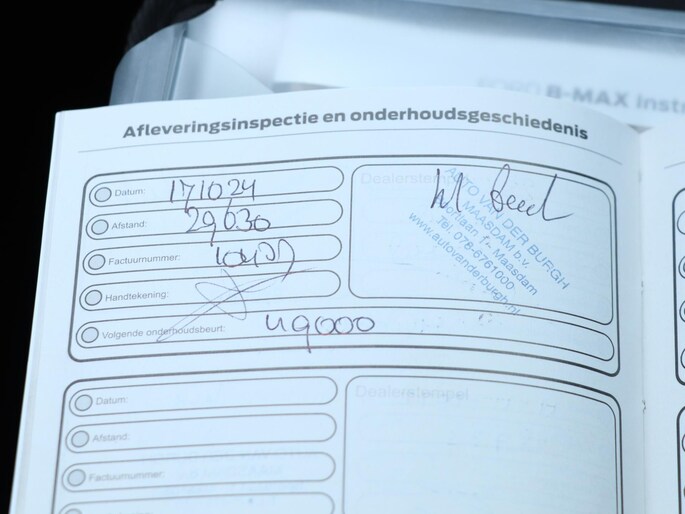 B-MAX
Afleveringsinspectie en onderhoudsgeschiedenis
Datum: 171024
Afstand: 29630
Factuurnummer:
Handtekening:
Volgende onderhoudsbeurt: 49000
Dealerstempel
AUTO VAN DER BURGH
MAASDAM b.v.
1 - Maasdam
Tel. 078-6761000
www.autovanderburgh.nl
Datum:
Afstand:
Factuurnummer:
Dealerstempel